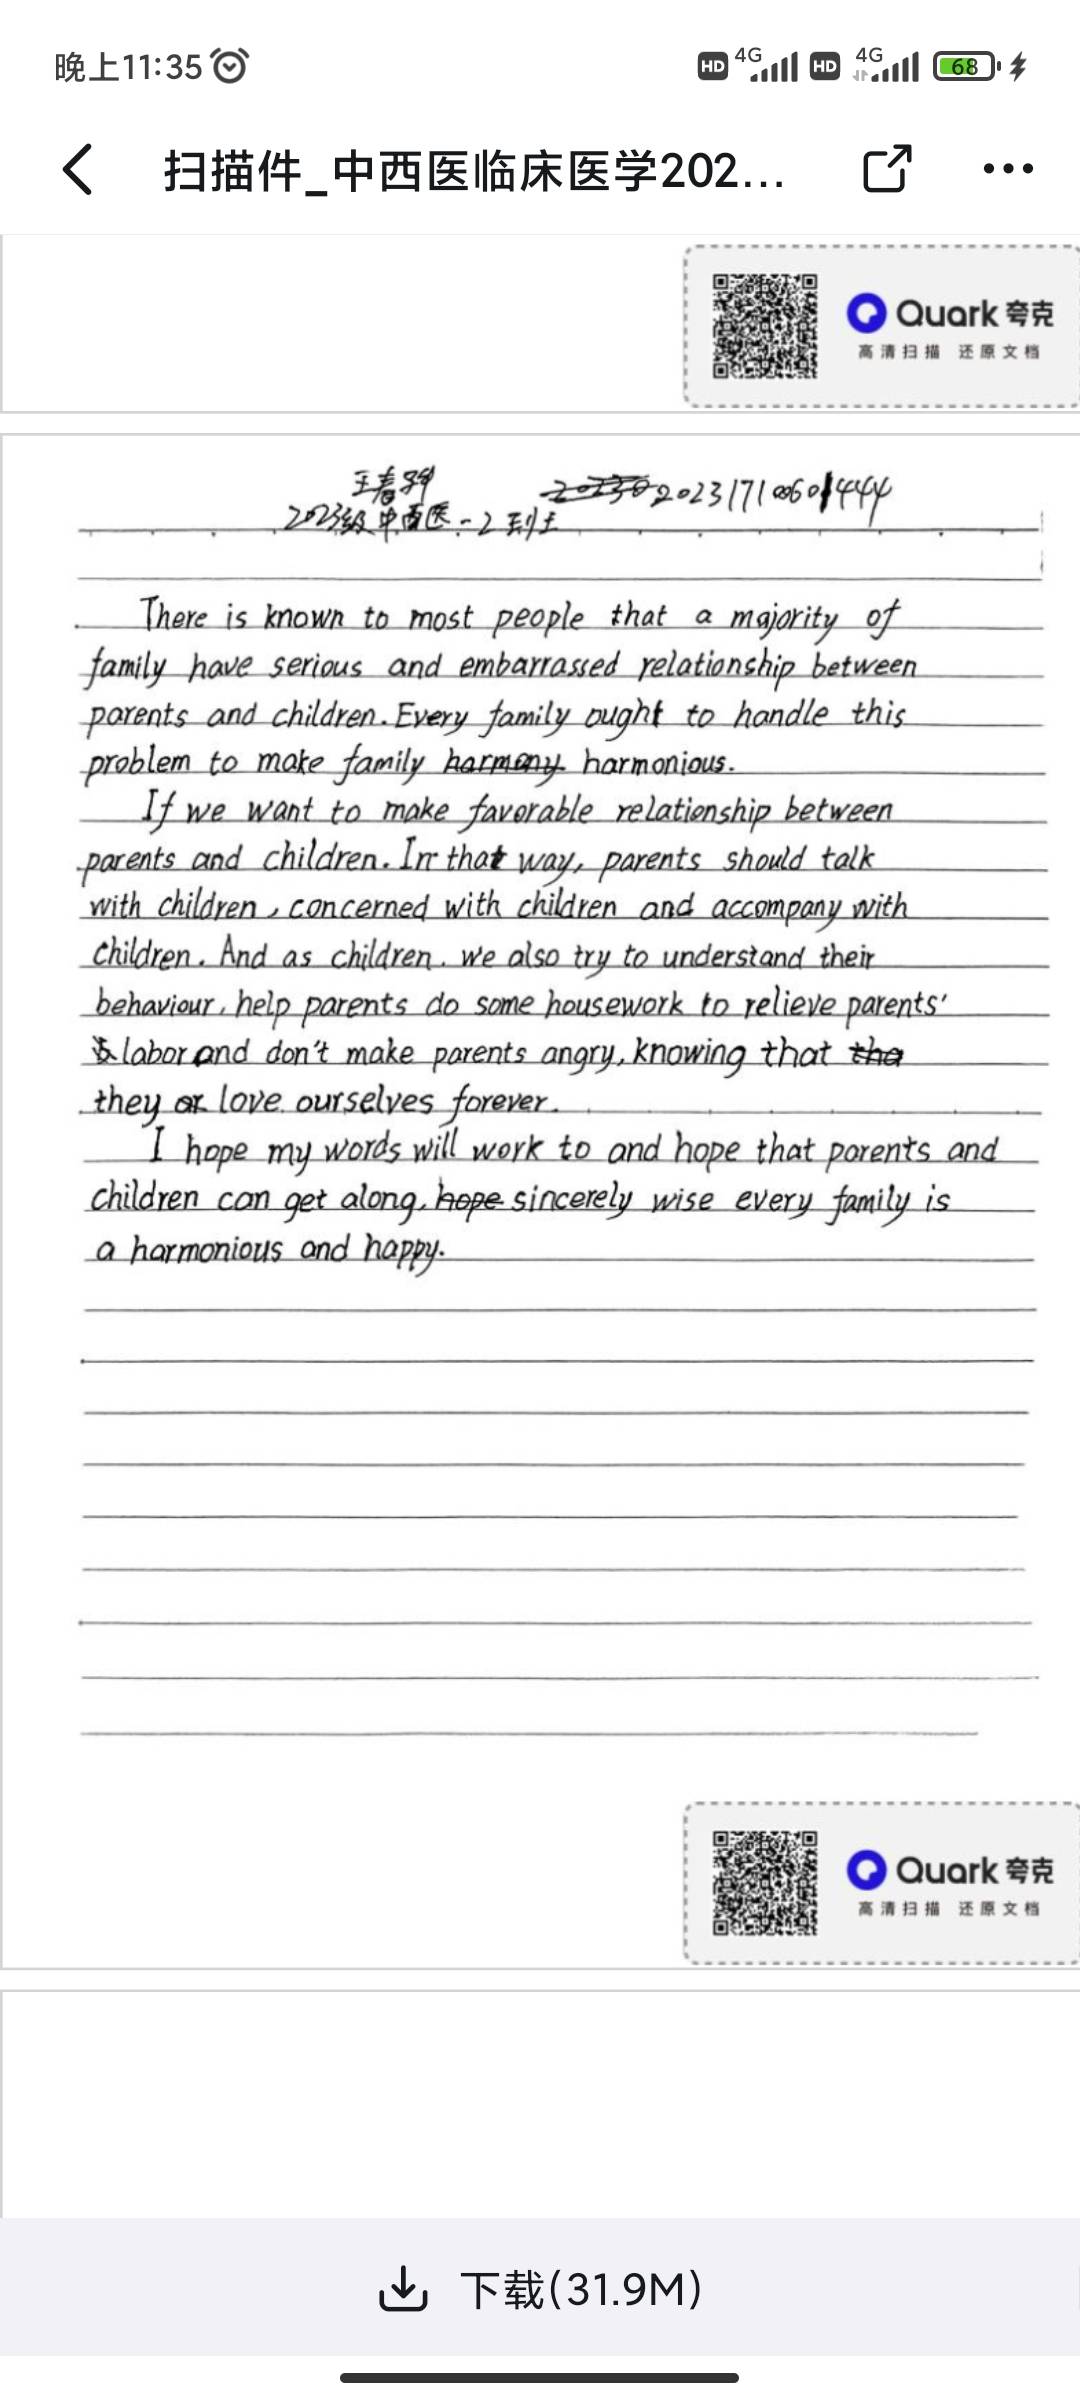 晚上11:35 HD 4G HD 4G 68
扫描件_中西医临床医学202...
Quark 夸克
高清扫描 还原文档
王春
20230 202317100601444
2023级中西医-2
There is known to most people that a majority of
family have serious and embarrassed relationship between
parents and children. Every family ought to handle this
problem to make family harmony harmonious.
If we want to make favorable relationship between
parents and children. In that way, parents should talk
with children, concerned with children and accompany with
children. And as children. we also try to understand their
behaviour, help parents do some housework to relieve parents'
labor and don't make parents angry, knowing that tha
they or love ourselves forever.
I hope my words will work to and hope that parents and
children can get along, hope sincerely wise every family is
a harmonious and happy.
Quark 夸克
高清扫描 还原文档
下载(31.9M)